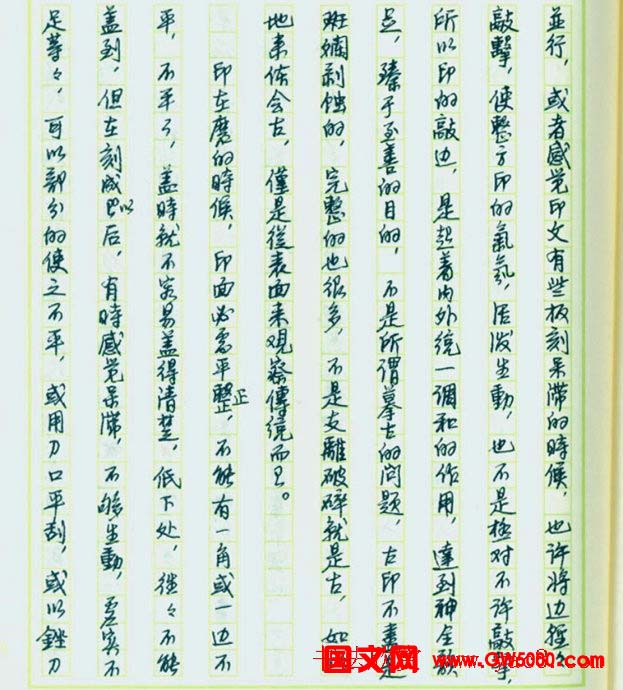 並行，或者感覚印文有些板刻呆滞的時候，也许將边輕々
敲擊，使整方印的氣氛，活潑生動，也不是極对不许敲擊，
所以印的敲边，是起着内外統一調和的作用，達到神全
足，臻于至善的目的，不是所謂摹古的问题，古印不盡是
斑斕剥蚀的，完整的也很多，不是支離破碎就是古，如
地来体会古，僅是從表面来观察傳统而已。
印在磨的時候，印面必意平整正，不能有一角或一边不
平，不平了，盖時就不容易盖得清楚，低下处，往々不能
盖到，但在刻成以后，有時感覚呆滞，不够生動，虚实不
足等々，可以部分的使之不平，或用刀口平刮，或以銼刀
国文网 www.GW5000.com